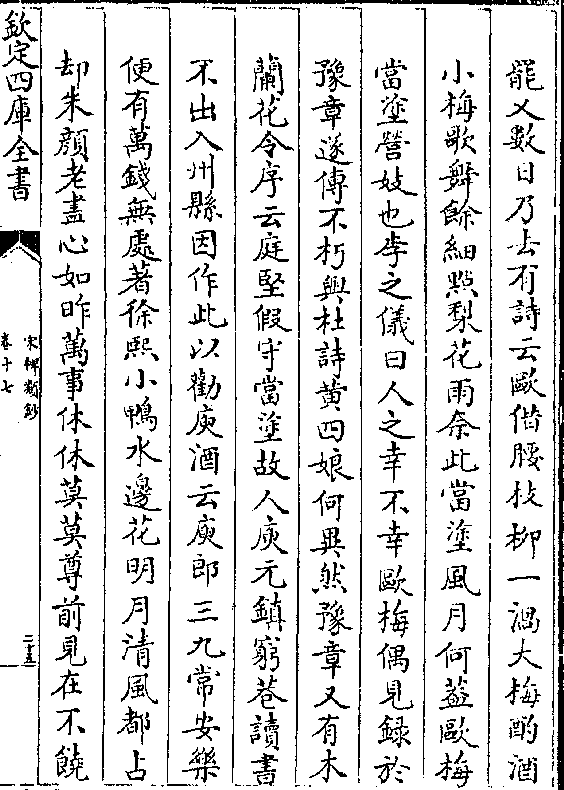 罷又數日乃去有詩云歐偕腰枝柳一渦大梅酌酒
小梅歌舞餘細點梨花雨奈此當塗風月何葢歐梅
當塗營妓也李之儀曰人之幸不幸歐梅偶見録於
豫章遂傳不朽與杜詩黄四娘何異然豫章又有木
蘭花令序云庭堅假守當塗故人庾元鎮窮巷讀書
不出入州縣因作此以勸庾酒云庾郎三九常安樂
便有萬錢無處著徐熙小鴨水邊花明月清風都占
却朱顔老盡心如昨萬事休休莫莫尊前見在不饒
欽定四庫全書
宋稗類鈔
卷十七
二十五